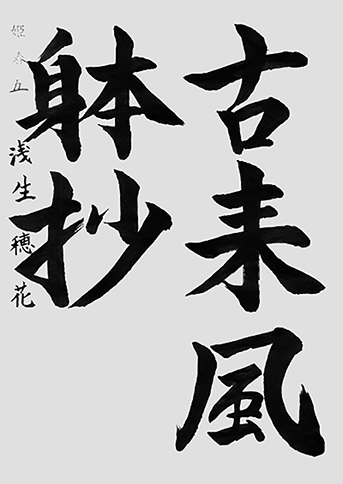 古来風
躰抄
姫路五 浅生穂花